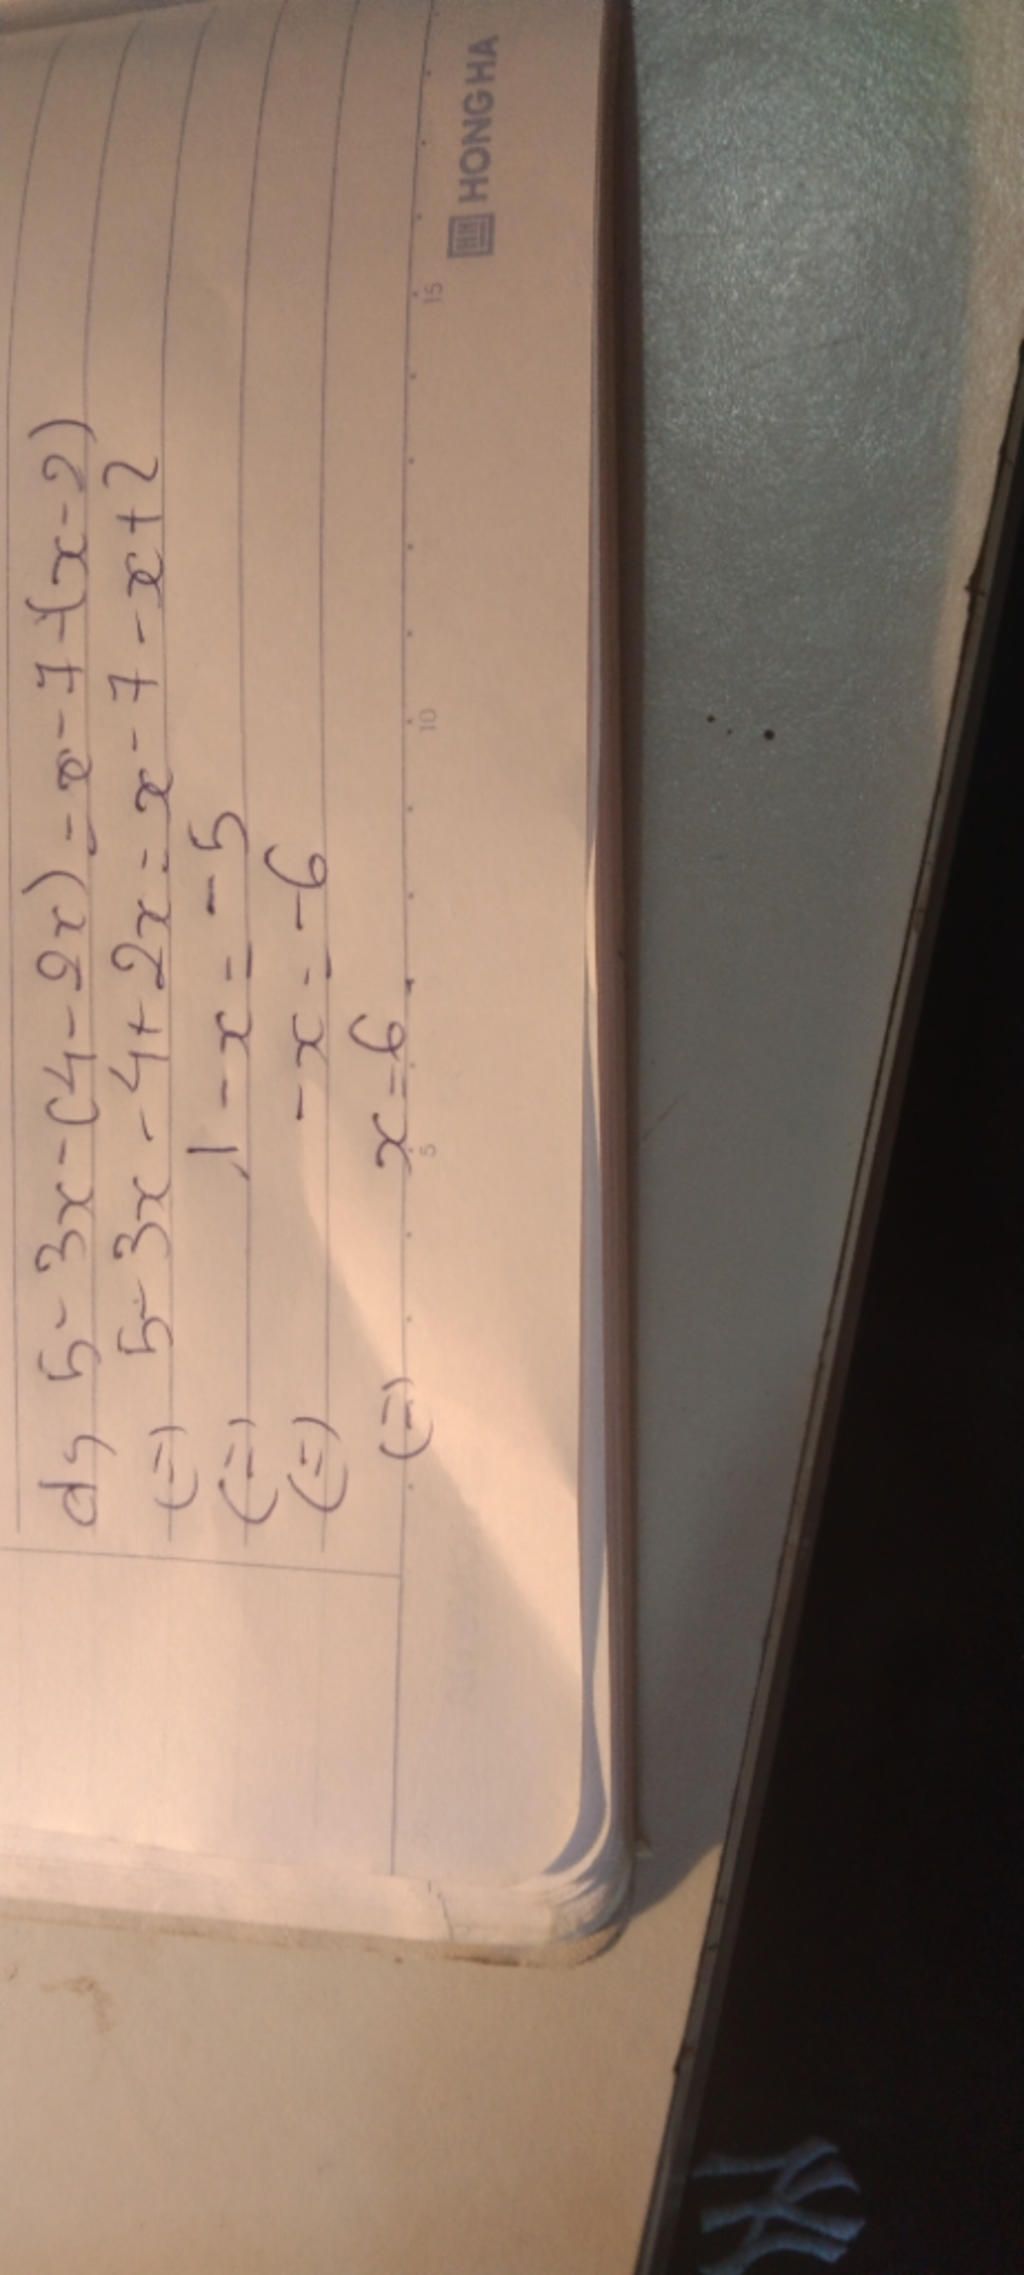 d, 5 - 3x - (4 - 2x) = x - 7 - (x - 2)
(=) 5 - 3x - 4 + 2x = x - 7 - x + 2
(=) 1 - x = - 5
(=) - x = - 6
(=) x = 6
5 10 15
HH HONG HA